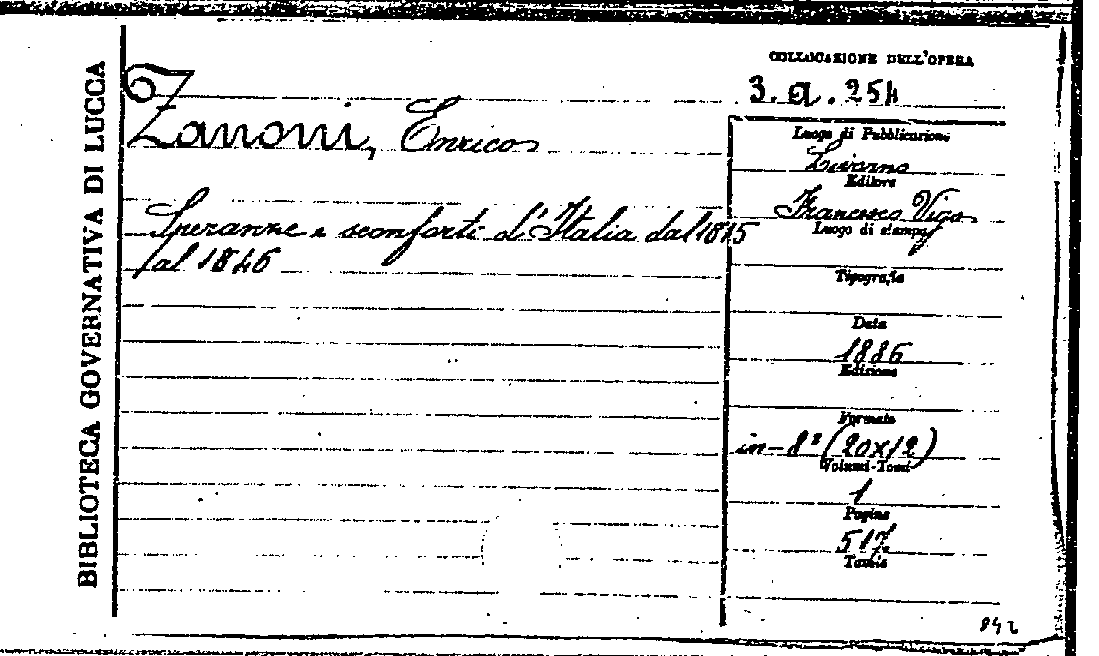 BIBLIOTECA GOVERNATIVA DI LUCCA
COLLOCAZIONE DELL'OPERA
3. a. 254
Zanoni, Enrico
Speranze e sconforti d'Italia dal 1815
al 1846
Luogo di Pubblicazione
Livorno
Editore
Francesco Vigo
Luogo di stampa
Tipografia
Data
1886
Edizione
Formato
in-8° (20x12)
Volumi-Tomi
1
Pagine
517
Tavole
842